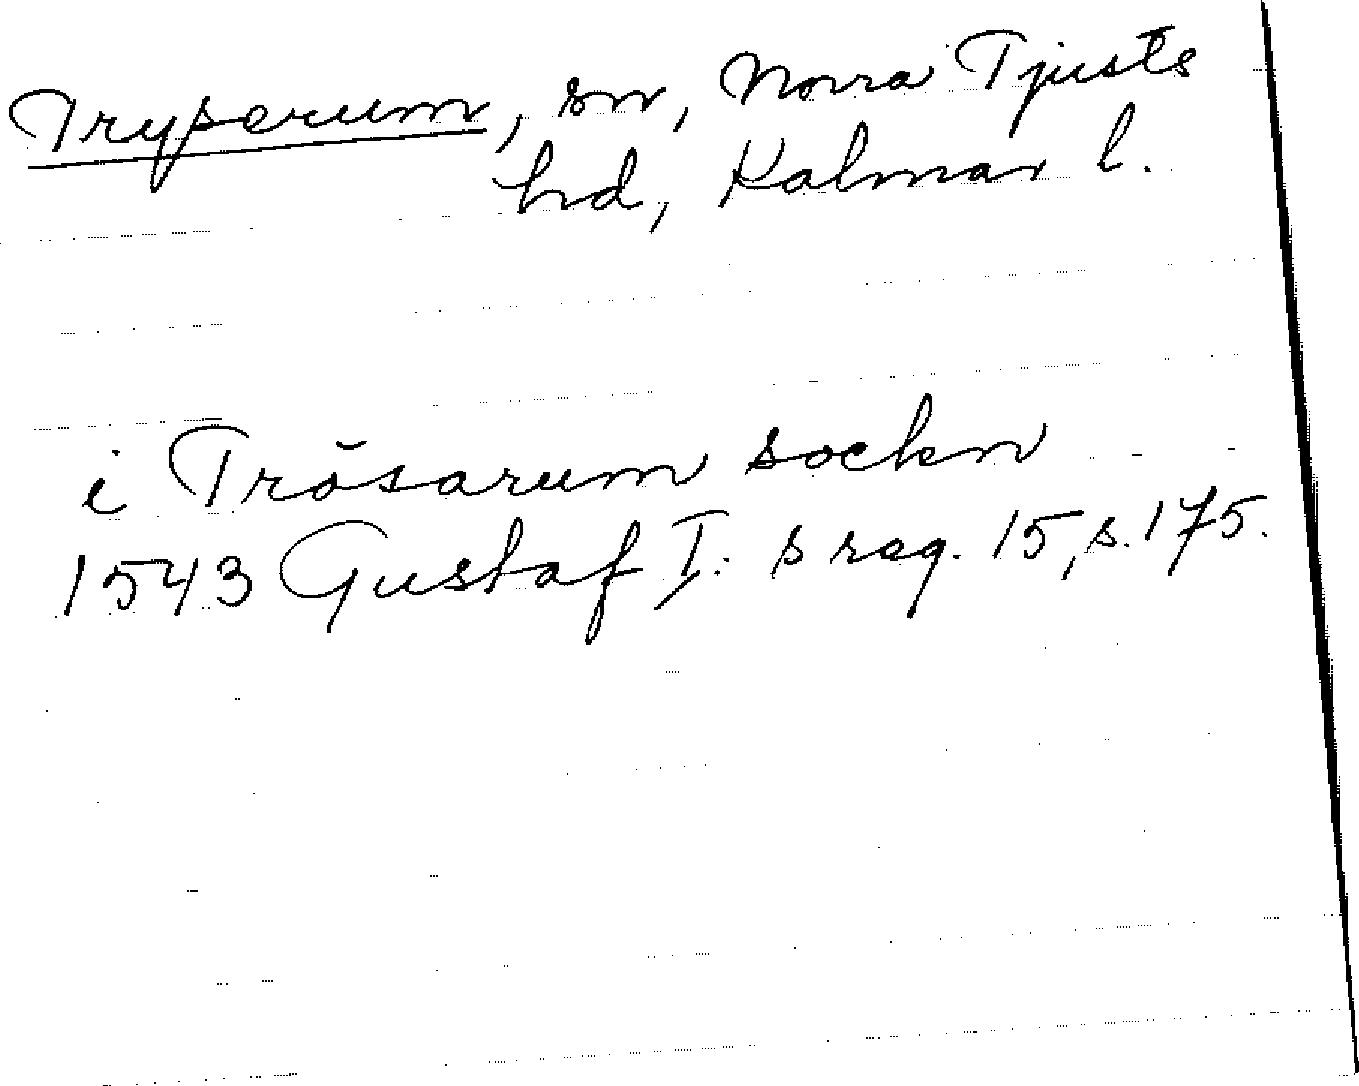 Tryserum, sn, Norra Tjusts
hd, Kalmar l.
i Trösarum sockn
1543 Gustaf I:s reg. 15, s. 175.